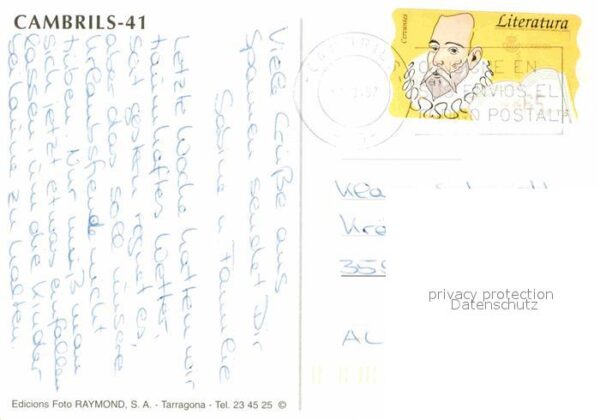 CAMBRILS-41
Viele Grüße aus
Spanien sendet Dir
Sabine u. Familie
Letzte Woche hatten wir
traumhaftes Wetter.
Seit gestern regnet es,
aber das soll unsere
Urlaubsfreude nicht
trüben. Nur muß man
sich jetzt etwas einfallen
lassen, um die Kinder
bei Laune zu halten.
Edicions Foto RAYMOND, S. A. - Tarragona - Tel. 23 45 25 ©
Cervantes
Literatura
CAMBRILS
RE EN
ENVIOS EL
O POSTAL
359
AL
privacy protection
Datenschutz